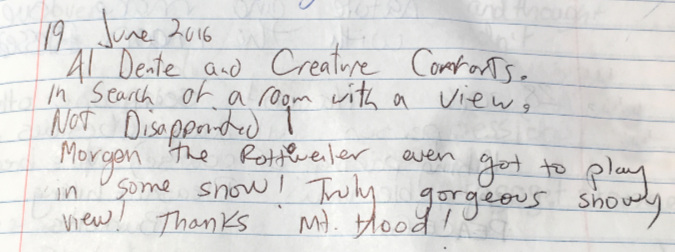 19 June 2016
Al Dente and Creature Comforts.
In search of a room with a view,
NOT Disappointed!
Morgan the Rottweiler even got to play
in some snow! Truly gorgeous snowy
view! Thanks Mt. Hood!